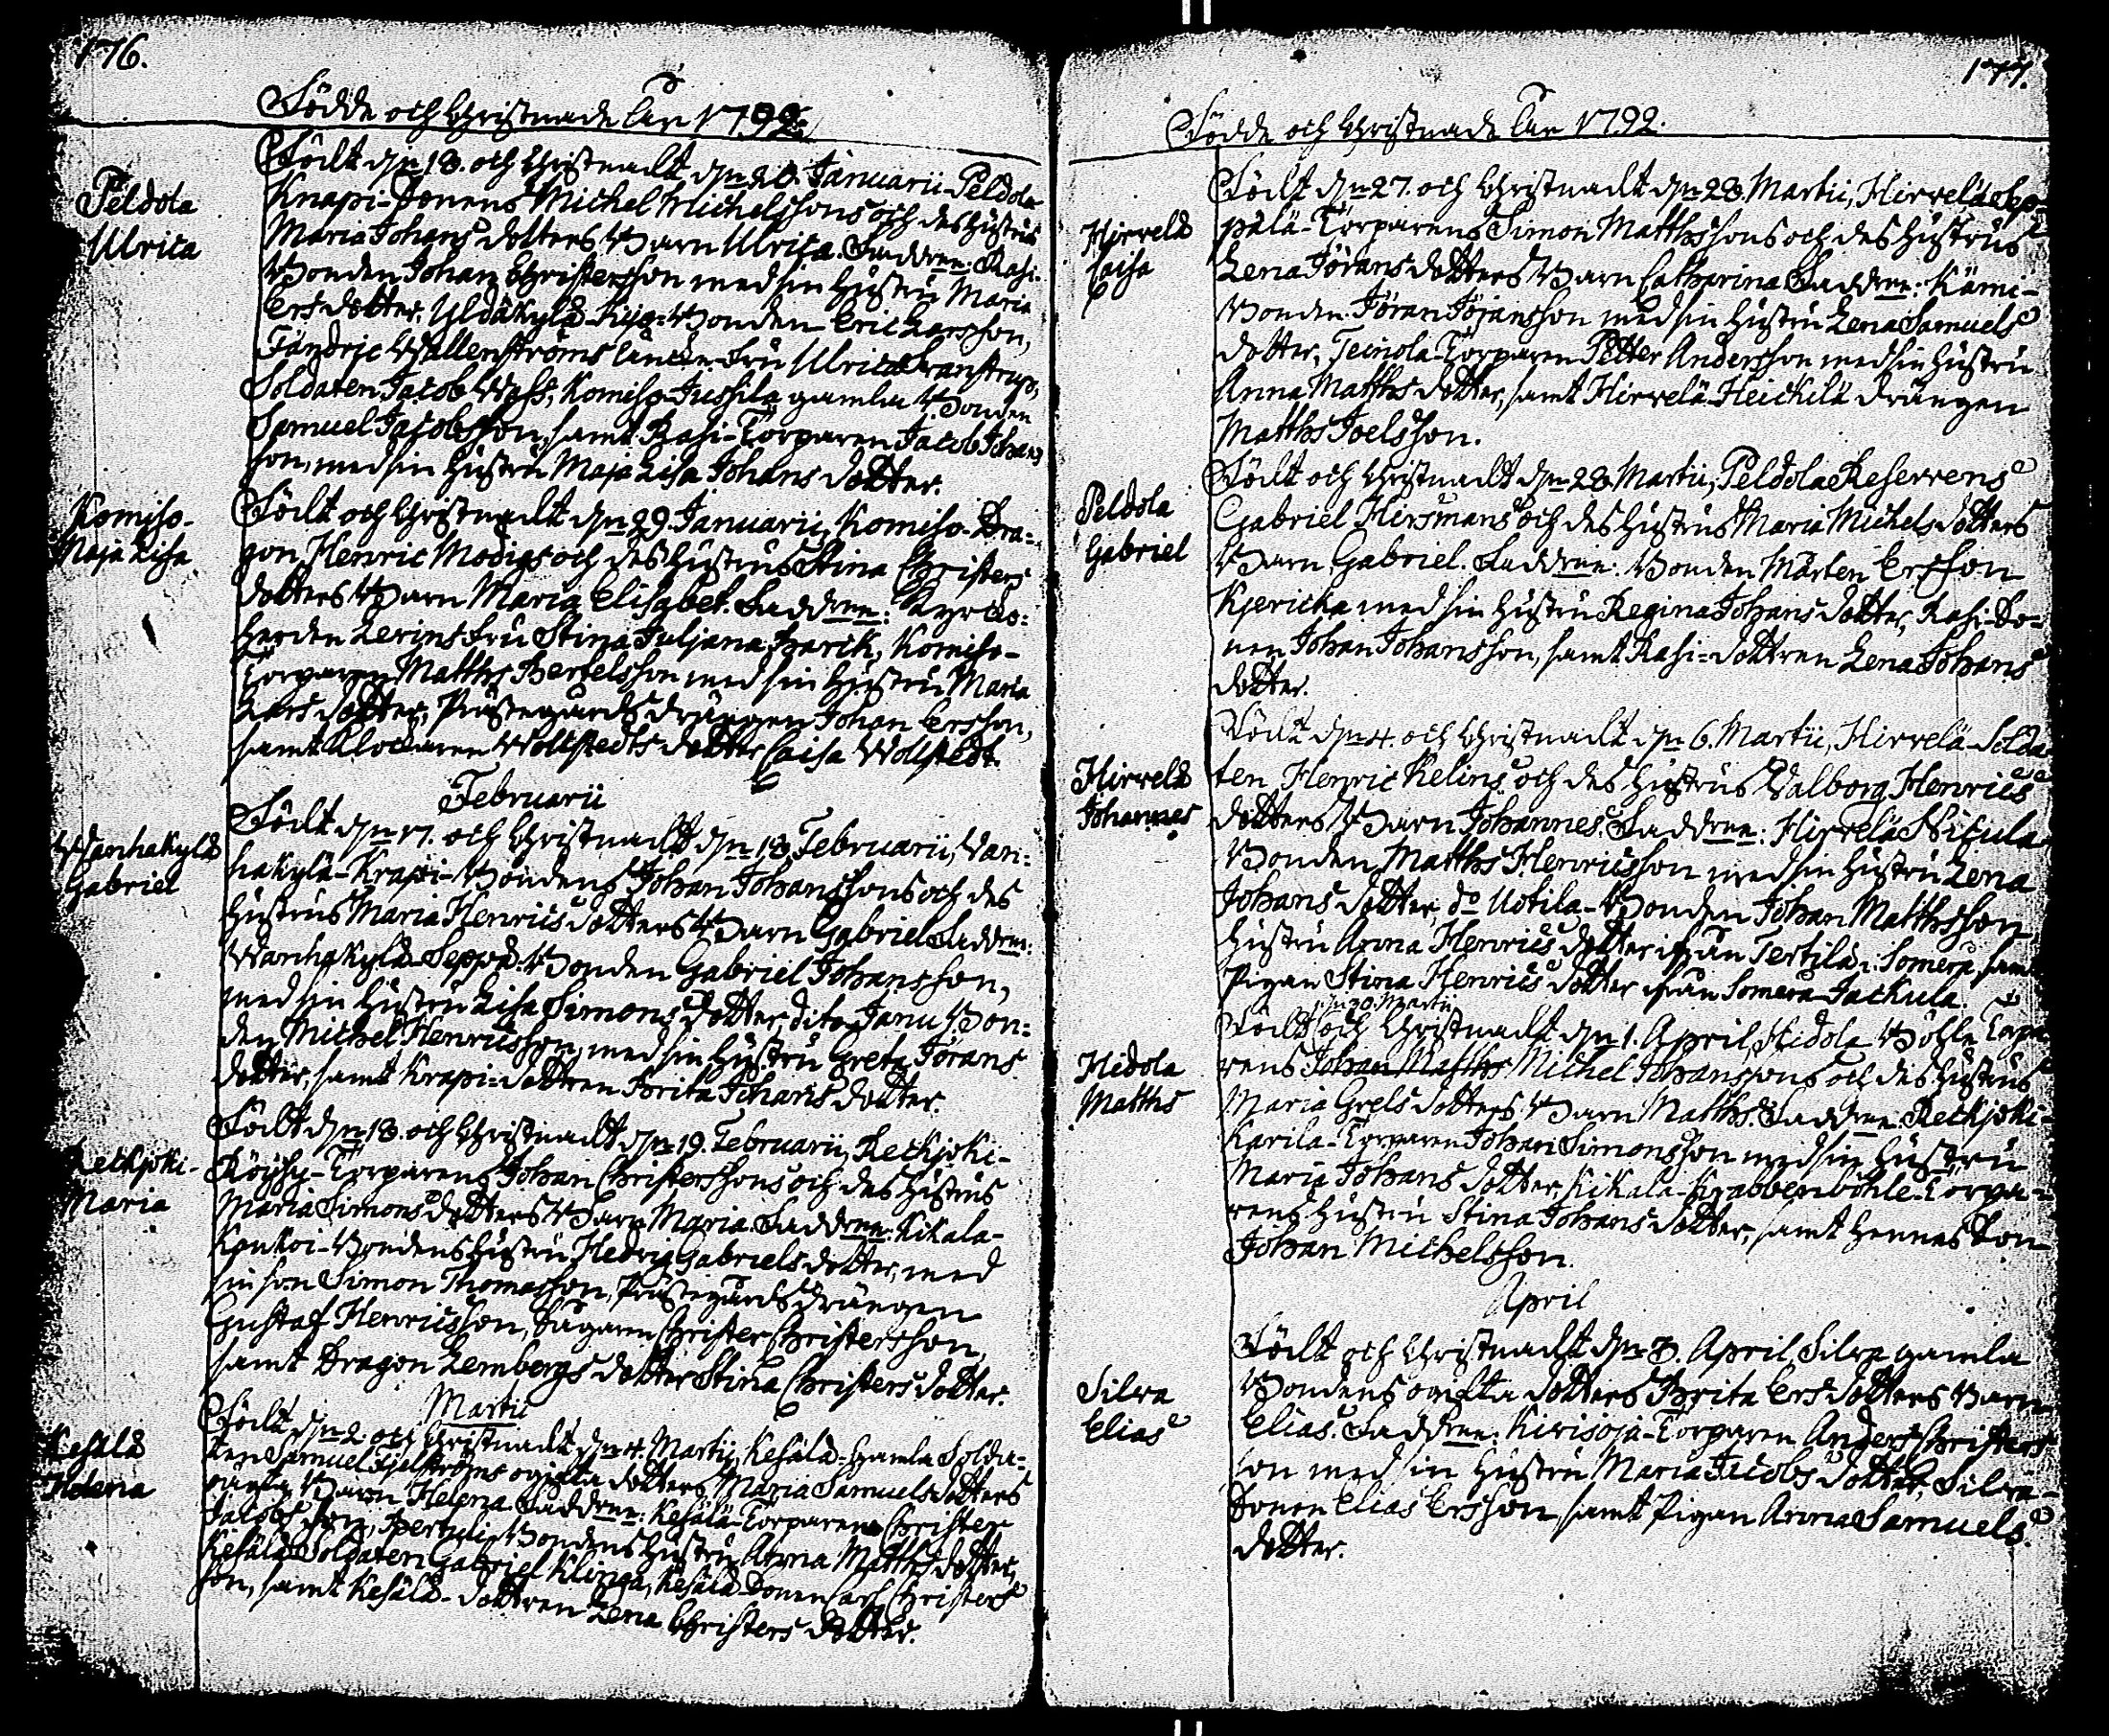 176.
Födde och Christnade År 1792.
Peldola
Ulrica
Födt d:n 18. och Christnadt d:n 20. Januarii Peldola
Knapi-Sonens Michel Michelssons och des Hustrus
Maria Johans dotters Barn Ulrica. Faddren: Rasi-
Bonden Johan Christersson med sin Hustru Maria
Ers dotter, Yldäkylä Bonden Eric Larsson,
Fändric Wallenströms Fru Ulrica
Soldaten Jacob Wass, Komiso-Jussila gamla Bonden
Samuel Jacobsson, samt Rasi-Torparen Jacob Johans
son, med sin Hustru Maja Lisa Johans dotter.
Komiso-
Maja Lisa
Födt och Christnadt d:n 29. Januarii, Komiso-Dra-
gon Henric Modigs och des Hustrus Stina Christers
dotters Barn Maria Elisabet. Faddren: Kyrcko-
herden Fru Stina Juljana Barck, Komiso-
Torparen Matths Bertelsson med sin Hustru Maria
Lars dotter, Prästegårds drängen Johan Ersson,
samt Klockaren Wollstedts dotter Caisa Wollstedt.
Februarii
Wanhakylä
Gabriel
Födt d:n 17. och Christnadt d:n 18. Februarii, Wan-
hakylä-Krapi-Bondens Johan Johanssons och des
Hustrus Maria Henrics dotters Barn Gabriel. Faddren:
Wanhakylä-Seppä-Bonden Gabriel Johansson,
med sin Hustru Lisa Simons dotter, dito Janu Bon-
den Michel Henricsson, med sin Hustru Greta Jörans
dotter, samt Krapi-dottren Brita Johans dotter.
Retkjoki-
Maria
Födt d:n 18. och Christnadt d:n 19. Februarii, Retkjoki-
Röyhy-Torparens Johan Christerssons och des Hustrus
Maria Simons dotters Barn Maria. Faddren: Kikala-
Konkoi-Bondens Hustru Hedvig Gabriels dotter, med
sin son Simon Thomasson, Prästegårds drängen
Gustaf Henricsson, Sågaren Christer Christersson,
samt Dragon Lembergs dotter Stina Christers dotter.
Martii
Kesälä
Helena
Födt d:n 2. och Christnadt d:n 4. Martii, Kesälä-gamla Solda-
ten Samuel ogifta dotters Maria Samuels dotters
Barn Helena. Faddren: Kesälä-Torparen Christer
Jacobs son, Pertuli-Bondens Hustru Anna Matths dotter,
Kesälä Soldaten Gabriel Klinga, Kesälä-Sonen Carl Christers
son, samt Kesälä-dottren Lena Christers dotter.
177.
Födde och Christnade År 1792.
Hirvelä
Caisa
Födt d:n 27. och Christnadt d:n 28. Martii, Hirvelä
pälä-Torparens Simon Matthssons och des Hustrus
Lena Jörans dotters Barn Catharina. Faddren: Kämi-
Bonden Jöran Jöransson med sin Hustru Lena Samuels
dotter, Teinola-Torparen Petter Andersson med sin Hustru
Anna Matths dotter, samt Hirvelä-Heickilä drängen
Matths Joelsson.
Peldola
Gabriel
Födt och Christnadt d:n 28. Martii, Peldola Reservens
Gabriel Hirsmans och des Hustrus Maria Michels dotters
Barn Gabriel. Faddren: Bonden Mårten Ersson
Kjericka med sin Hustru Regina Johans dotter, Rasi-So-
nen Johan Johansson, samt Rasi-dottren Lena Johans
dotter.
Hirvelä
Johannes
Födt d:n 4. och Christnadt d:n 6. Martii, Hirvelä-Solda-
ten Henric Kelins och des Hustrus Walborg Henrics
dotters Barn Johannes. Faddren: Hirvelä Nicula-
Bonden Matths Henricsson med sin Hustru Lena
Johans dotter, d:o Uotila-Bonden Johan Matthsson,
Hustru Anna Henrics dotter ifrån Tertilä i Somero, samt
Pigan Stina Henrics dotter ifrån Somero-Jackula.
Hidola
Matths
d:n 30. Martii
Födt och Christnadt d:n 1. April, Hidola Böhle Torpa-
rens Johan Matths Michel Johanssons och des Hustrus
Maria Grels dotters Barn Matths. Faddren: Retkjoki-
Karila-Torparen Johan Simonsson med sin Hustru
Maria Johans dotter, Kikala-Krabbenböhle-Torpa-
rens Hustru Stina Johans dotter, samt hennes Son
Johan Michelsson.
April
Silva
Elias
Födt och Christnadt d:n 3. April, Silva gamla
Bondens ogifta dotters Brita Ers dotters Barn
Elias. Faddren: Kirisoja-Torparen Anders Christers
son med sin Hustru Maria Jacobs dotter, Silva-
Sonen Elias Ersson, samt Pigan Anna Samuels
dotter.